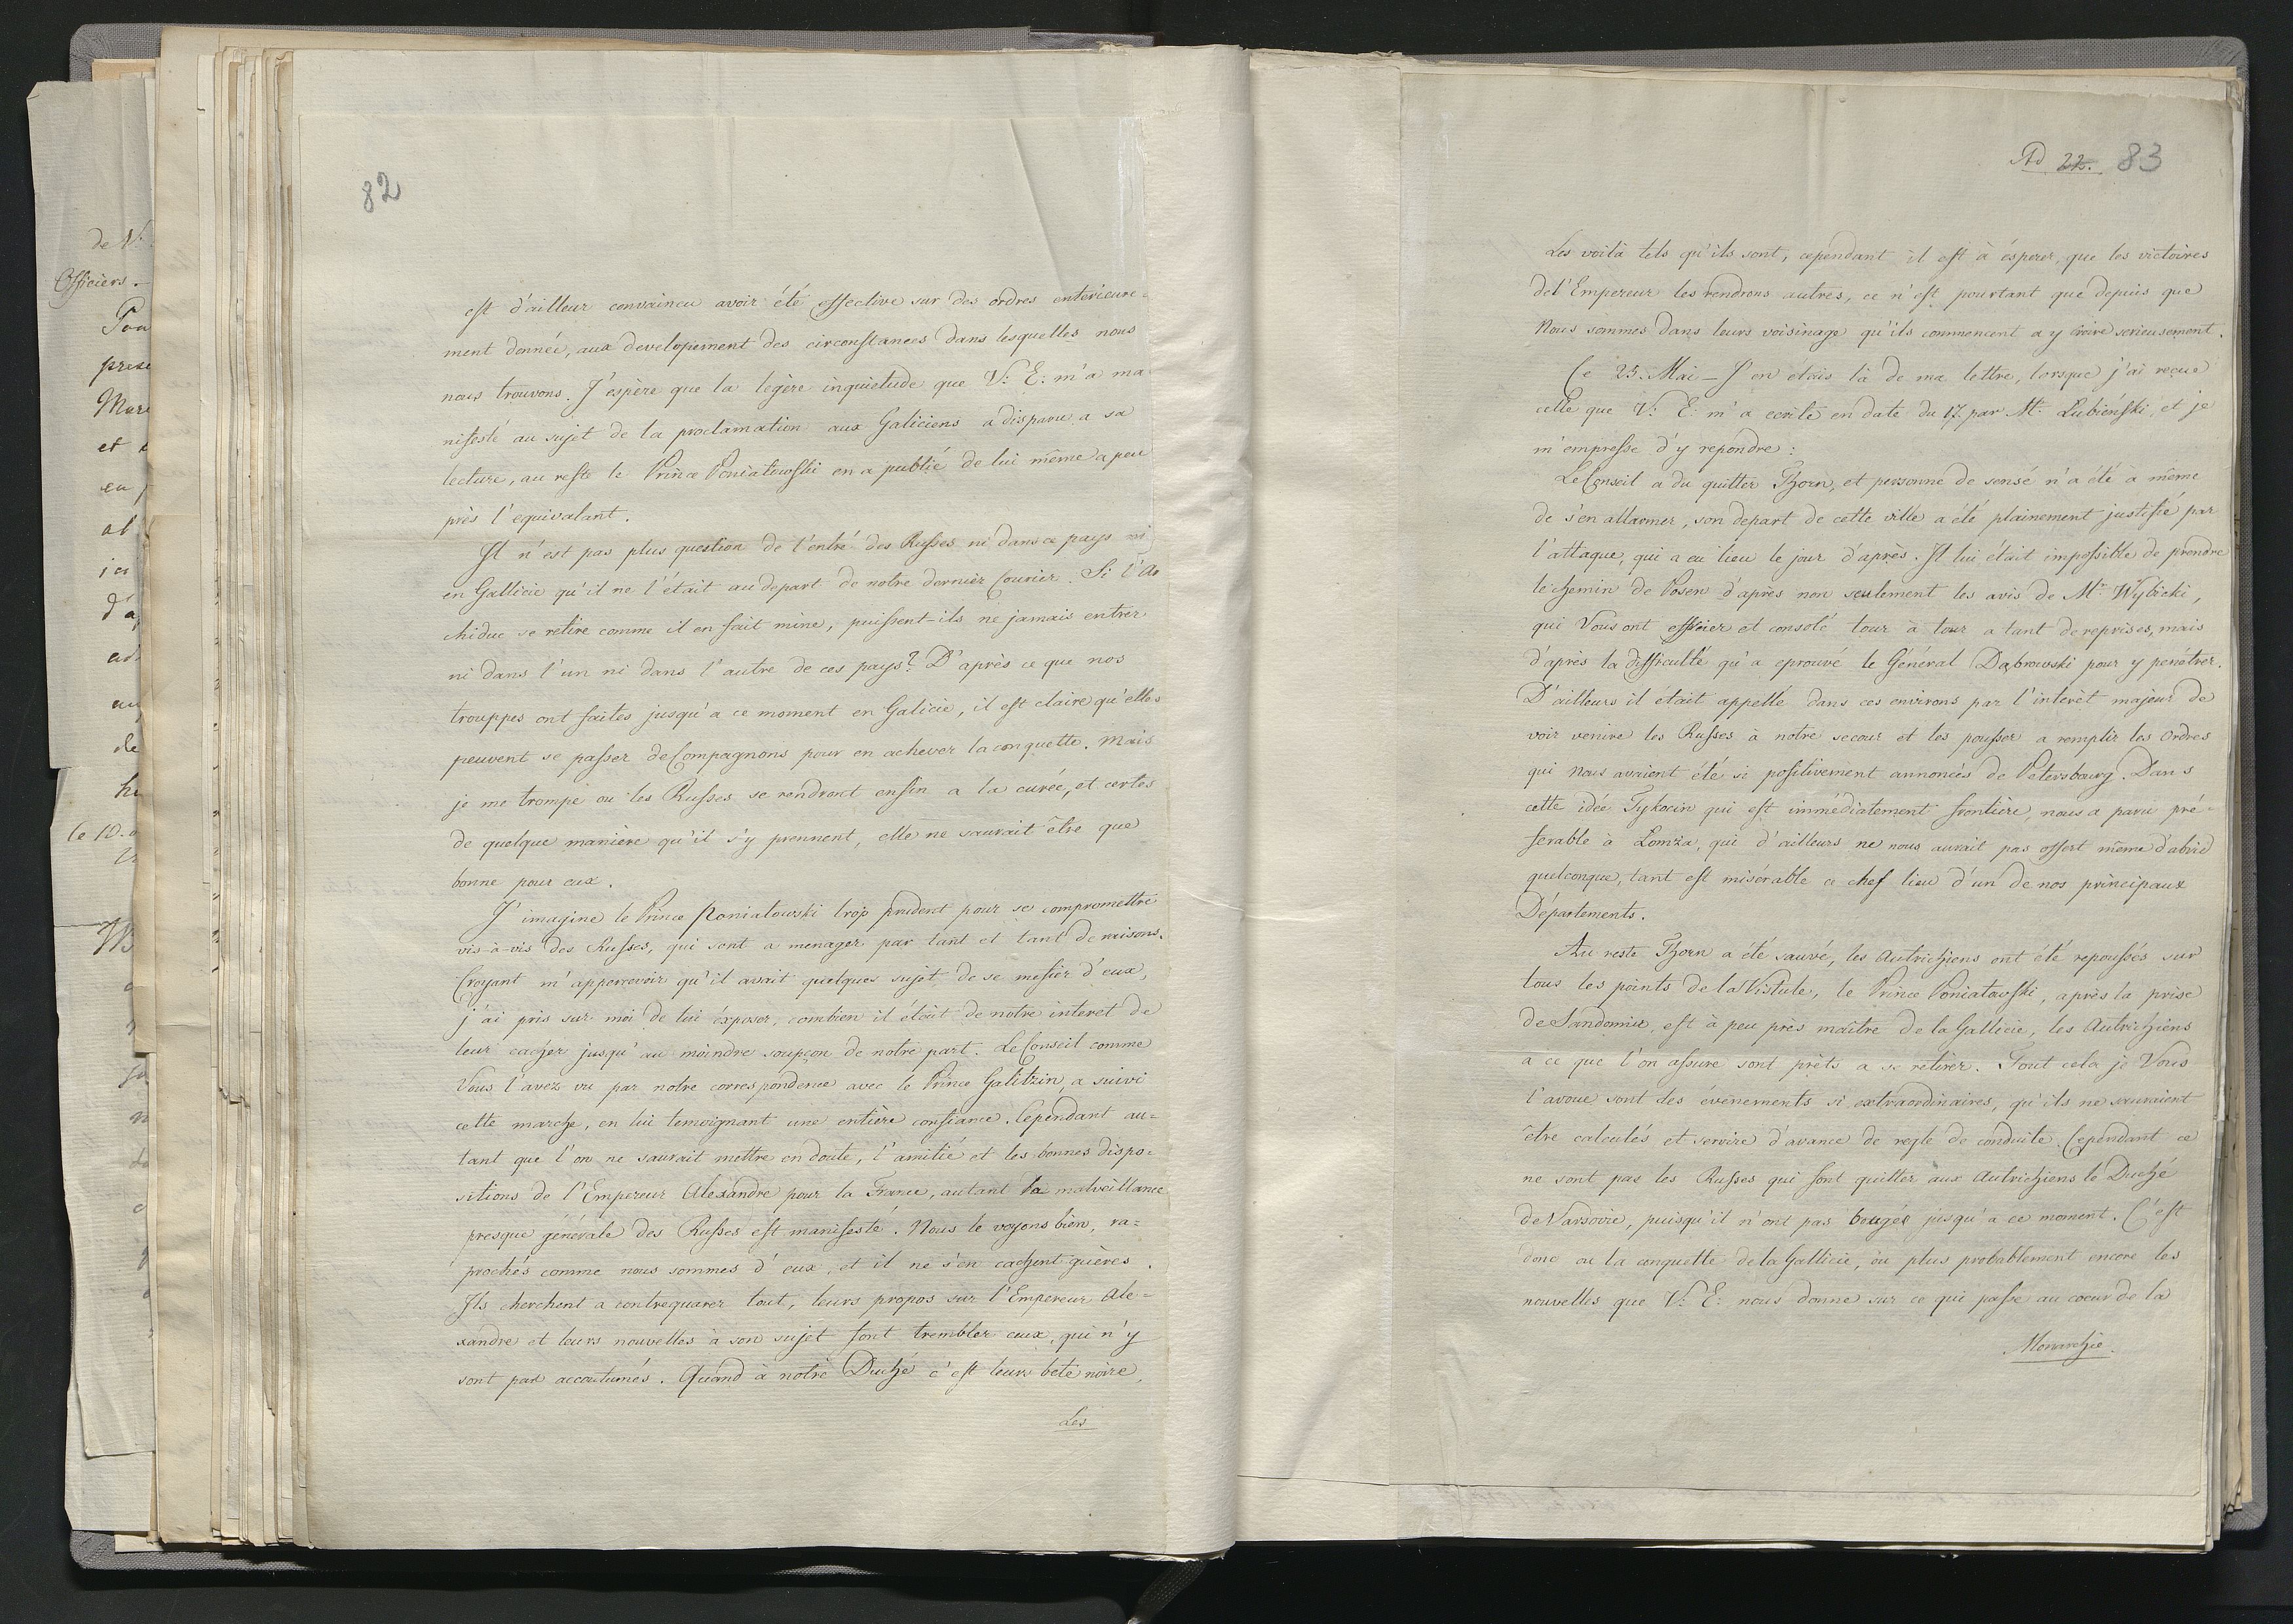 82
est d'ailleur convaincu avoir été effective sur des ordres enterieure=
ment donnée, aux developement des circonstances dans lesquelles nous
nous trouvons. J'espère que la legère inquietude que V: E: m'a ma
nifesté au sujet de la proclamation aux Galiciens a disparu a sa
lecture, au reste le Prince Poniatowski en a publié de lui même a peu
près l'equivalant.
Il n'est pas plus question de l'entré des Russes ni dans ce pays ni
en Gallicie qu'il ne l'était au depart de notre dernier Courier. Si l'Ar
chiduc se retire comme il en fait mine, puissent-ils ne jamais entrer
ni dans l'un ni dans l'autre de ces pays? D'après ce que nos
trouppes ont faites jusqu'a ce moment en Galicie, il est claire qu'elles
peuvent se passer de Compagnons pour en achever la conquette. Mais
je me trompe ou les Russes se rendront enfin a la curée, et certes
de quelque manière qu'il s'y prennent, elle ne saurait être que
bonne pour eux.
J'imagine le Prince Poniatowski trop prudent pour se compromettre
vis-à-vis des Russes, qui sont a menager par tant et tant de raisons.
Croyant m'apperrevoir qu'il avait quelques sujet de se mefier d'eux,
j'ai pris sur moi de lui éxposer, combien il était de notre interet de
leur cacher jusqu'au moindre soupçon de notre part. Le Conseil comme
Vous l'avez vu par notre correspondence avec le Prince Galitzin, a suivi
cette marche, en lui temoignant une entière confiance. Cependant au=
tant que l'on ne saurait mettre en doute, l'amitié et les bonnes dispo=
sitions de l'Empereur Alexandre pour la France, autant la malveillance
presque générale des Russes est manifesté. Nous le voyons bien, ra=
prochés comme nous sommes d'eux, et il ne s'en cachent guères.
Ils cherchent a contrequarer tout, leurs propos sur l'Empereur Ale=
xandre et leurs nouvelles à son sujet font trembler ceux, qui n'y
sont pas accoutumés. Quand à notre Duché c'est leurs bete noire,
Les
Ad 22. 83
Les voilà tels qu'ils sont, cependant il est à ésperer, que les victoires
de l'Empereur les rendrons autres, ce n'est pourtant que depuis que
Nous sommes dans leurs voisinage qu'ils commencent a y croire serieusement.
Ce 25. Mai – J'en étais là de ma lettre, lorsque j'ai reçue
celle que V: E: m'a ecrite en date du 17. par Mr. Lubieński, et je
m'empresse d'y repondre:
Le Conseil a du quitter Thorn, et personne de sensé n'a été à même
de s'en allarmer, son depart de cette ville a été plainement justifié par
l'attaque, qui a eu lieu le jour d'après. Il lui était impossible de prendre
le chemin de Posen d'après non seulement les avis de Mr. Wybicki,
qui Vous ont effraier et consolé tour à tour a tant de reprises, mais
d'après la difficulté qu'a eprouvé le Général Dąbrowski pour y penétrer.
D'ailleurs il était appellé dans ces environs par l'interêt majeur de
voir venire les Russes à notre secour et les pousser a remplir les Ordres
qui Nous avaient été si positivement annoncés de Petersbourg. Dans
cette idée Tykocin qui est immédiatement frontière, nous a paru pré=
ferable à Lomza, qui d'ailleurs ne nous aurait pas offert même d'abrid
quelconque, tant est misérable ce chef lieu d'un de nos principaux
Départements.
Au reste Thorn a été sauvé, les Autrichiens ont été repoussés sur
tous les points de la Vistule, le Prince Poniatowski, après la prise
de Sandomir, est à peu près maître de la Gallicie, les Autrichiens
a ce que l'on assure sont prêts a se retirer. Tout cela je Vous
l'avoue sont des événements si extraordinaires, qu'ils ne sauraient
être calculés et servire d'avance de regle de conduite. Cependant ce
ne sont pas les Russes qui font quitter aux Autrichiens le Duché
de Varsovie, puisqu'il n'ont pas bougés jusqu'a ce moment. C'est
donc ou la conquette de la Gallicie, ou plus probablement encore les
nouvelles que V: E: nous donne sur ce qui passe au coeur de la
Monarchie.